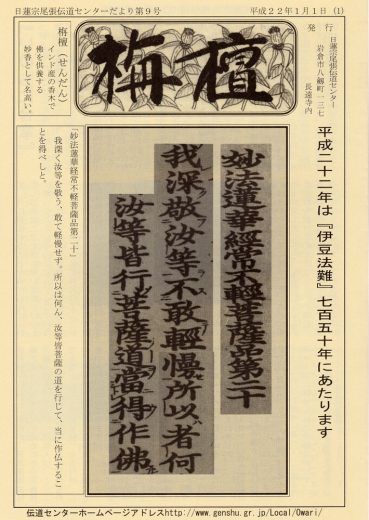 日蓮宗尾張伝道センターだより第9号
平成22年1月1日 (1)
発行
日蓮宗尾張伝道センター
岩倉市八剱町一三七
長遠寺内
栴檀
栴檀（せんだん）
インド産の香木で
佛を供養する
妙香として名高い。
平成二十二年は『伊豆法難』七百五十年にあたります
妙法蓮華經常不輕菩薩品第二十
我深敬汝等不敢輕慢所以者何
汝等皆行菩薩道當得作佛
「妙法蓮華経常不軽菩薩品第二十」
我深く汝等を敬う、敢て軽慢せず。所以は何ん、汝等皆菩薩の道を行じて、当に作仏するこ
とを得べしと。
伝道センターホームページアドレスhttp://www.genshu.gr.jp/Local/Owari/